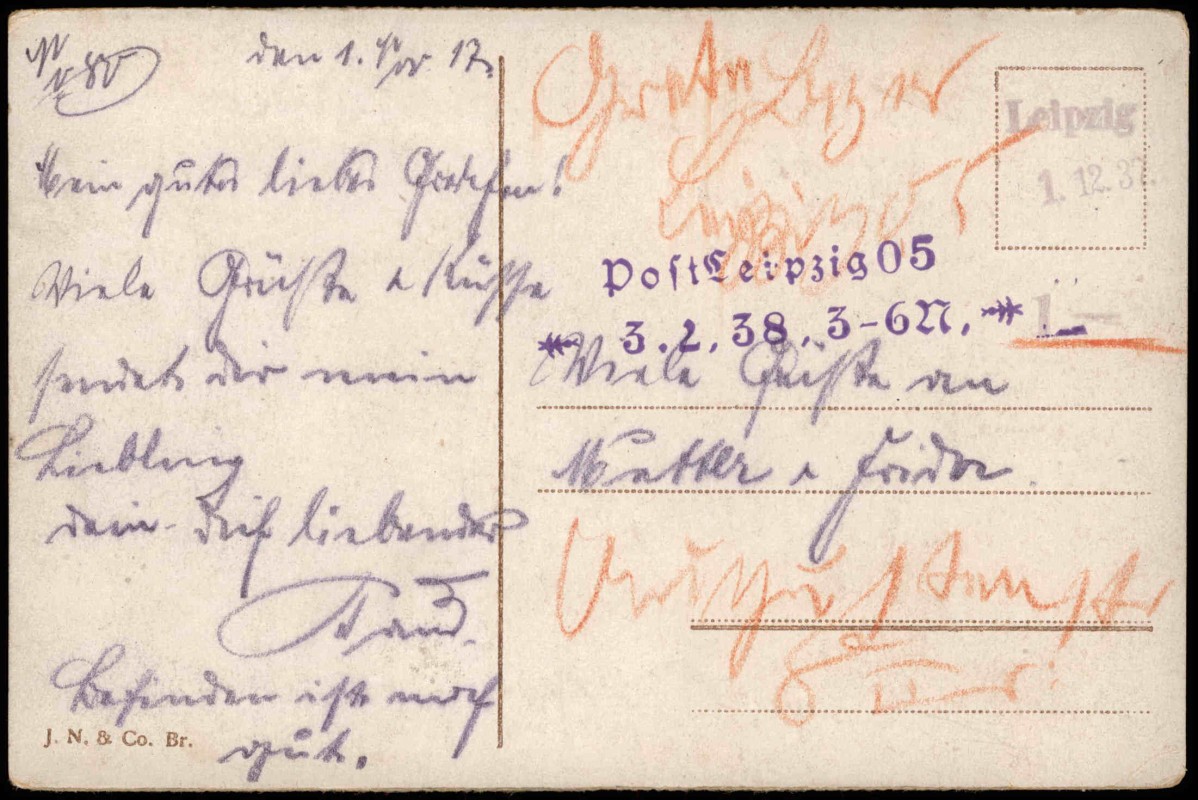 N
V 80
den 1. Nov 17.
Mein gutes liebes Gretchen!
Viele Grüße u Küsse
sendet dir mein
Liebling
dein dich liebender
Befinden ist noch
gut.
J. N. & Co. Br.
Leipzig
Leipzig
1. 12. 37.
Post Leipzig 05
3.2.38.3-6N.
1.–
Viele Grüße an
Mutter u Frida.